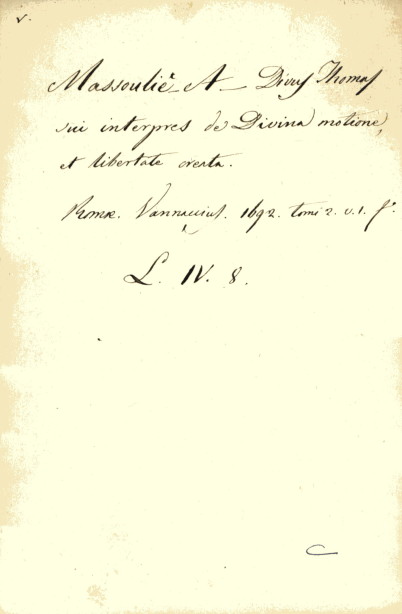 v.
Massoulié A- Divus Thomas
sui interpres de Divina motione,
et libertate creata.
Romæ. Vannaccius. 1692. tomi 2. v. 1. fº.
L. IV. 8.
C